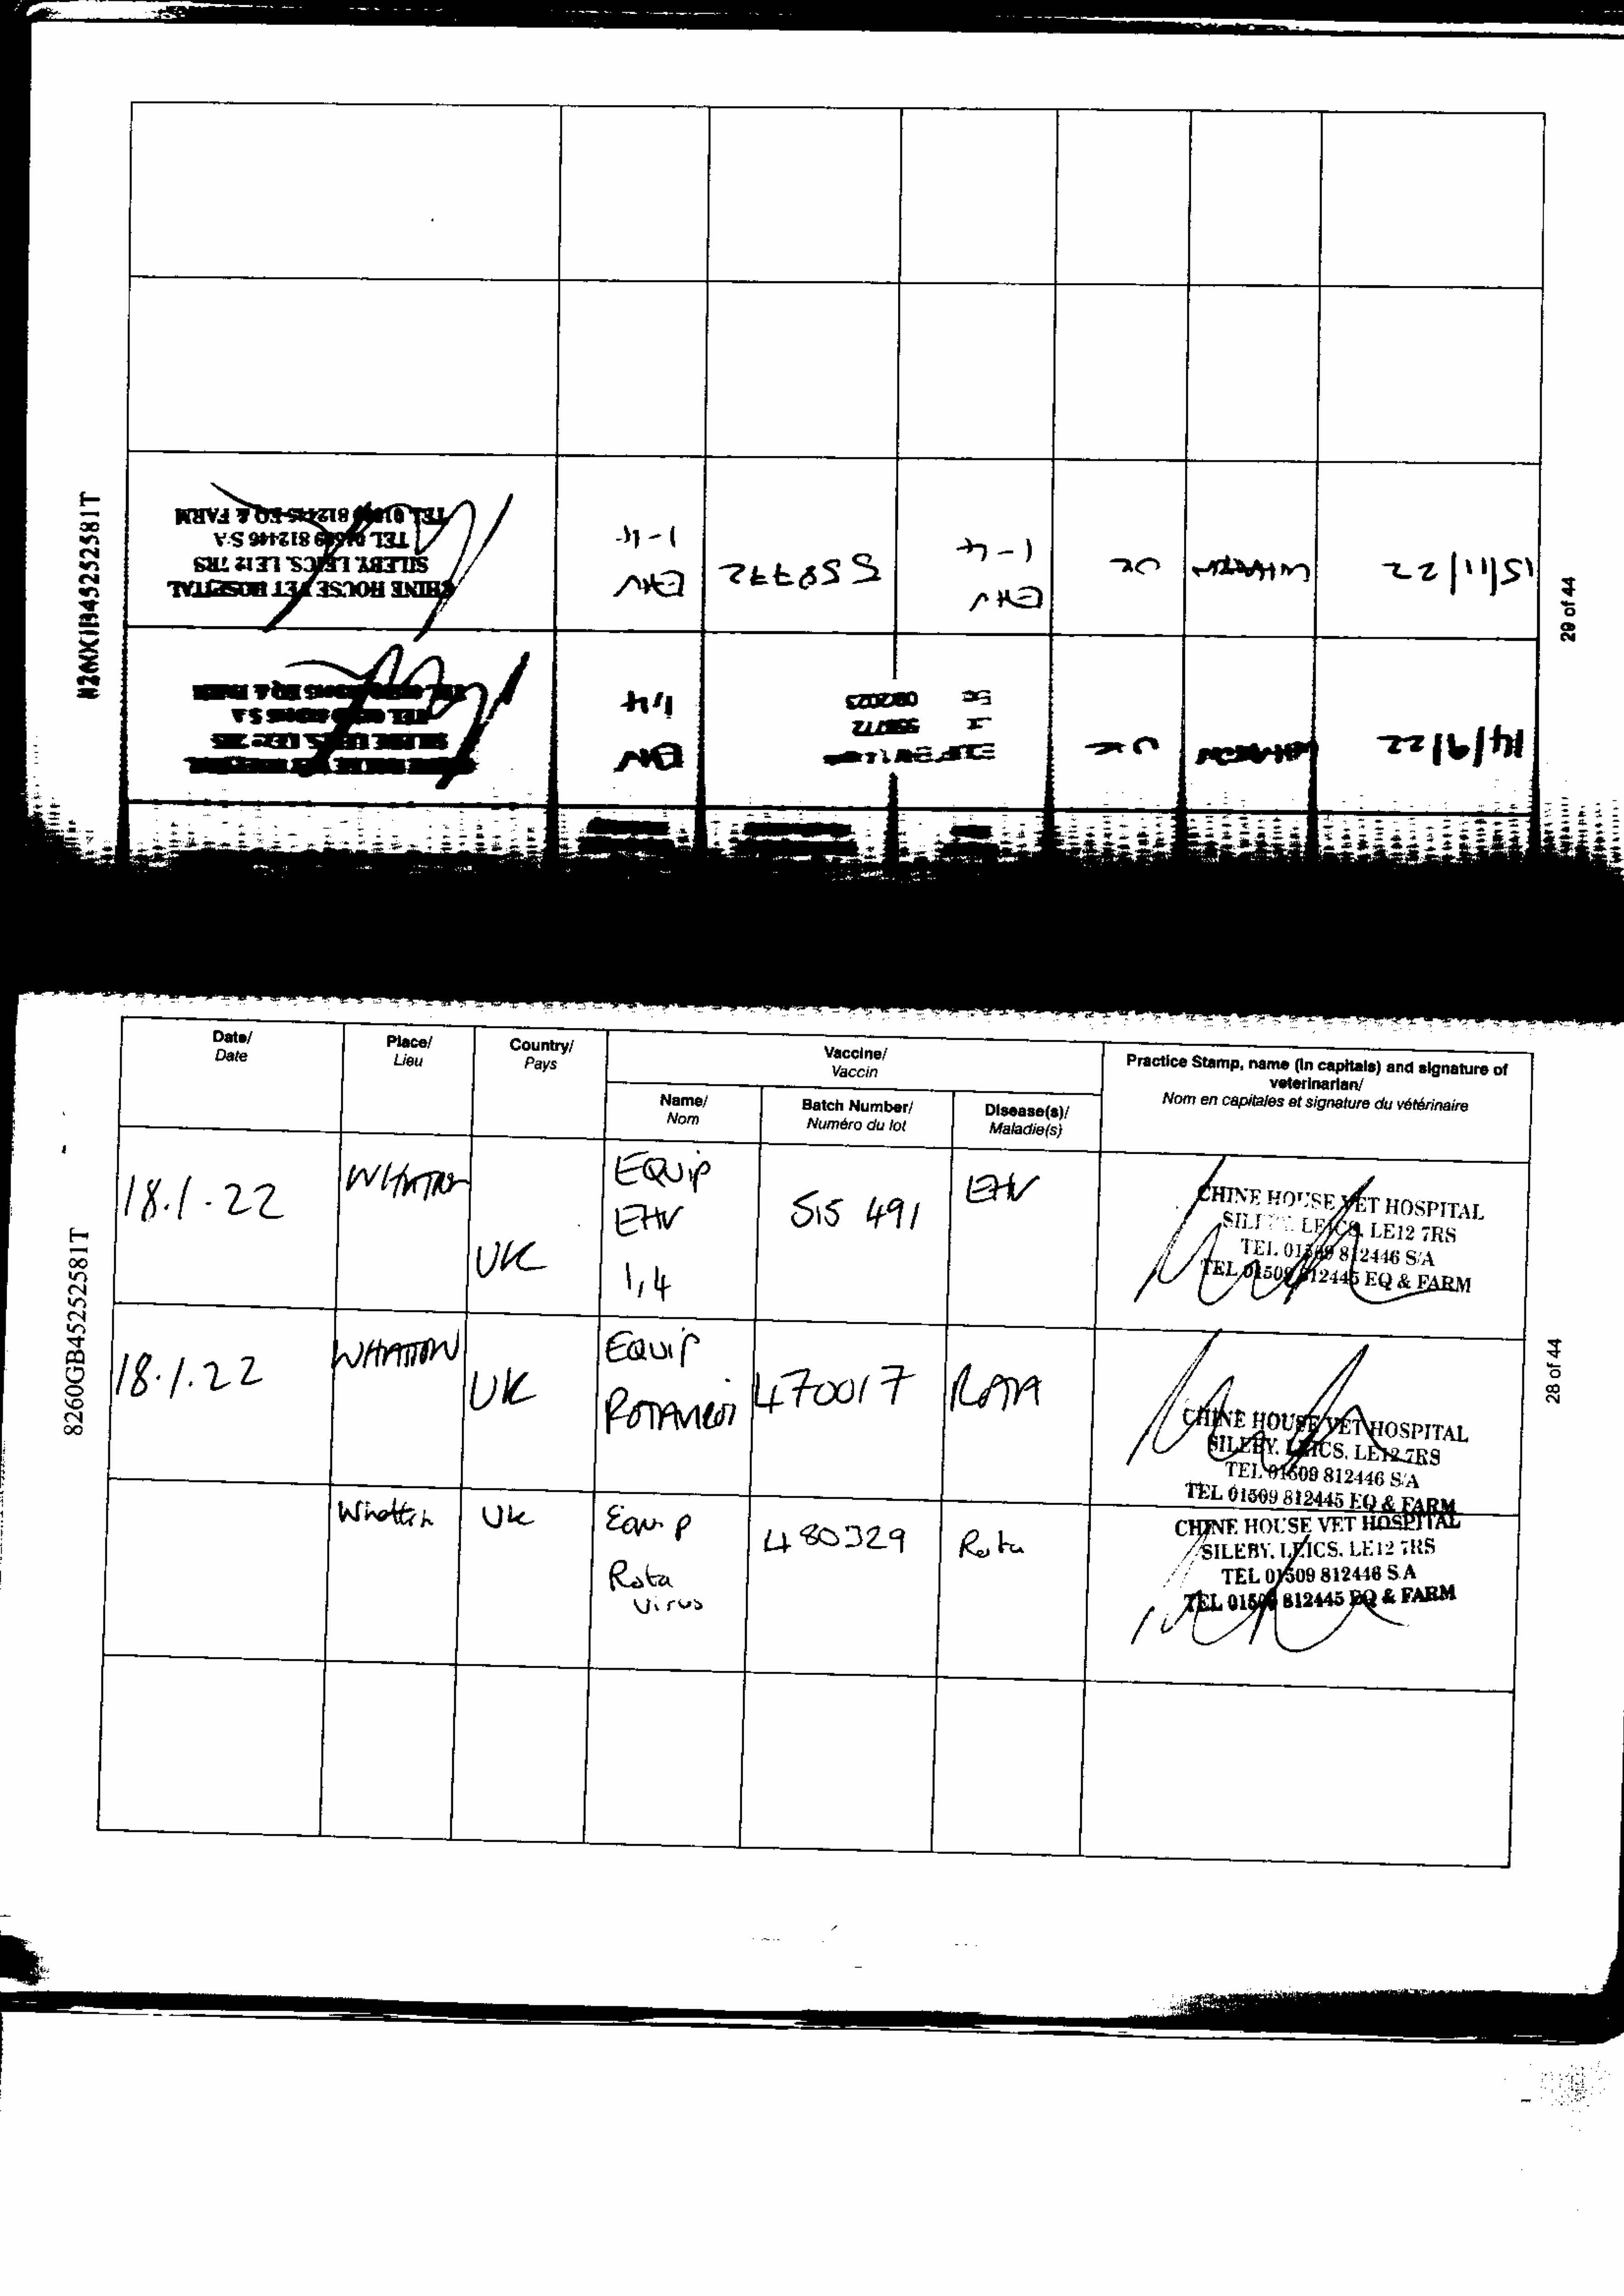 29 of 44
14/9/22
UK
558772
092023
EHV
1/4
15/11/22
WHATTON
UK
EHV
1-4
558772
EHV
1-4
CHINE HOUSE VET HOSPITAL
SILEBY. LEICS. LE12 7RS
TEL 01509 812446 S/A
TEL 01509 812445 EQ & FARM
8260GB45252581T
28 of 44
Date/
Date
Place/
Lieu
Country/
Pays
Vaccine/
Vaccin
Practice Stamp, name (in capitals) and signature of
veterinarian/
Nom en capitales et signature du vétérinaire
Name/
Nom
Batch Number/
Numéro du lot
Disease(s)/
Maladie(s)
18.1.22
WHATTON
UK
EQUIP
EHV
1,4
515 491
EHV
CHINE HOUSE VET HOSPITAL
SILEBY. LEICS. LE12 7RS
TEL 01509 812446 S/A
TEL 01509 812445 EQ & FARM
18.1.22
WHATTON
UK
EQUIP
470017
ROTA
CHINE HOUSE VET HOSPITAL
SILEBY. LEICS. LE12 7RS
TEL 01509 812446 S/A
TEL 01509 812445 EQ & FARM
Whatton
Uk
Equip
Rota
Virus
480329
Rota
CHINE HOUSE VET HOSPITAL
SILEBY. LEICS. LE12 7RS
TEL 01509 812446 S.A
TEL 01509 812445 EQ & FARM